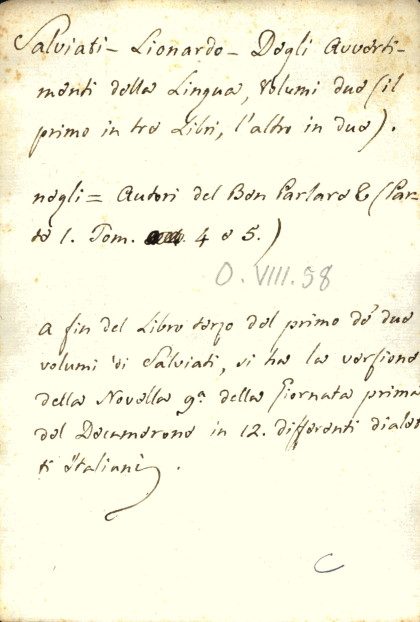 Salviati - Lionardo - Degli Avverti-
menti della Lingua, Volumi due (il
primo in tre Libri, l'altro in due).
negli = Autori del Ben Parlare & (Par-
te 1. Tom. 4 e 5.)
O. VIII. 58
a fin del Libro terzo del primo de' due
volumi di Salviati, si ha la versione
della Novella 9ª della Giornata prima
del Decamerone in 12. differenti dialet
ti italiani.
C